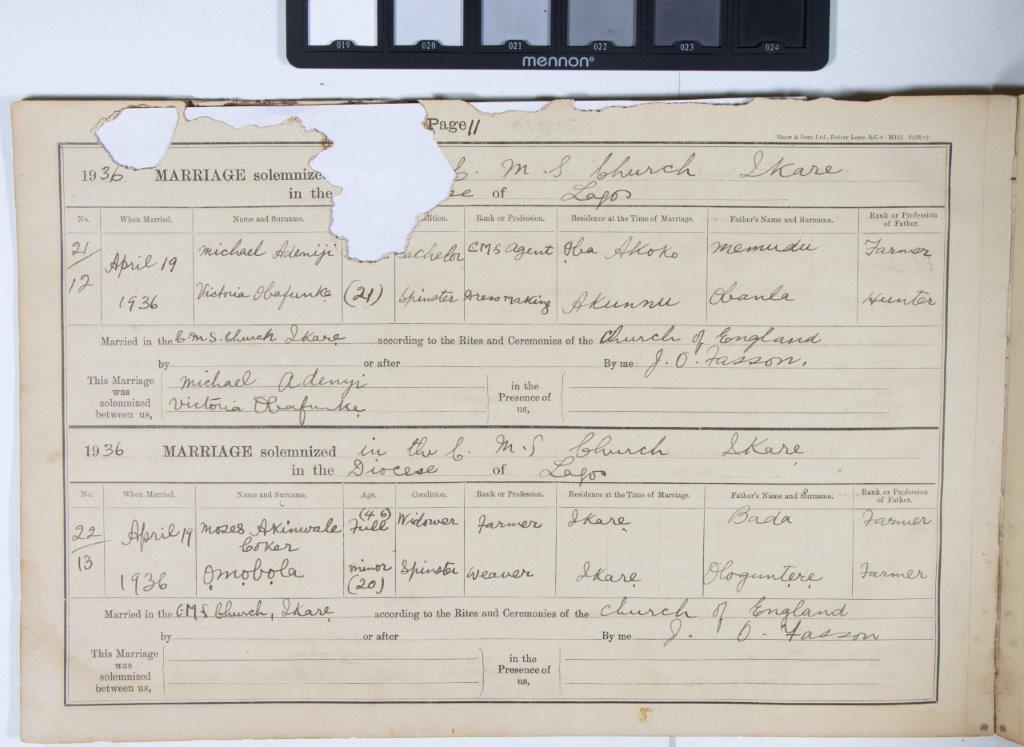 019 020 021 022 023 024
mennon®
Page 11
Shaw & Sons Ltd., Fetter Lane, E.C.4
1936 MARRIAGE solemnized C. M. S Church Ikare
in the se of Lagos
No. When Married. Name and Surname. dition. Rank or Profession. Residence at the Time of Marriage. Father's Name and Surname. Rank or Profession of Father.
21/12 April 19 Michael Adeniji achelor CMS Agent Ọba Akoko Memudu Farmer
1936 Victoria Ọbafunkẹ (21) Spinster Dressmaking Akunnu Ọbanla Hunter
Married in the C.M.S. Church Ikarẹ according to the Rites and Ceremonies of the Church of England
by or after By me J. O. Fasson.
This Marriage was solemnized between us, Michael Adenyi in the Presence of us,
Victoria Ọbafunkẹ
1936 MARRIAGE solemnized in the C. M. S Church Ikarẹ
in the Diocese of Lagos
No. When Married. Name and Surname. Age. Condition. Rank or Profession. Residence at the Time of Marriage. Father's Name and Surname. Rank or Profession of Father.
22/13 April 19 Moses Akinwale Coker (46) Full Widower Farmer Ikarẹ Bada Farmer
1936 Ọmọbọla minor (20) Spinster Weaver Ikarẹ Ologuntẹrẹ Farmer
Married in the CMS Church, Ikarẹ according to the Rites and Ceremonies of the Church of England
by or after By me J. O. Fasson
This Marriage was solemnized between us, in the Presence of us,